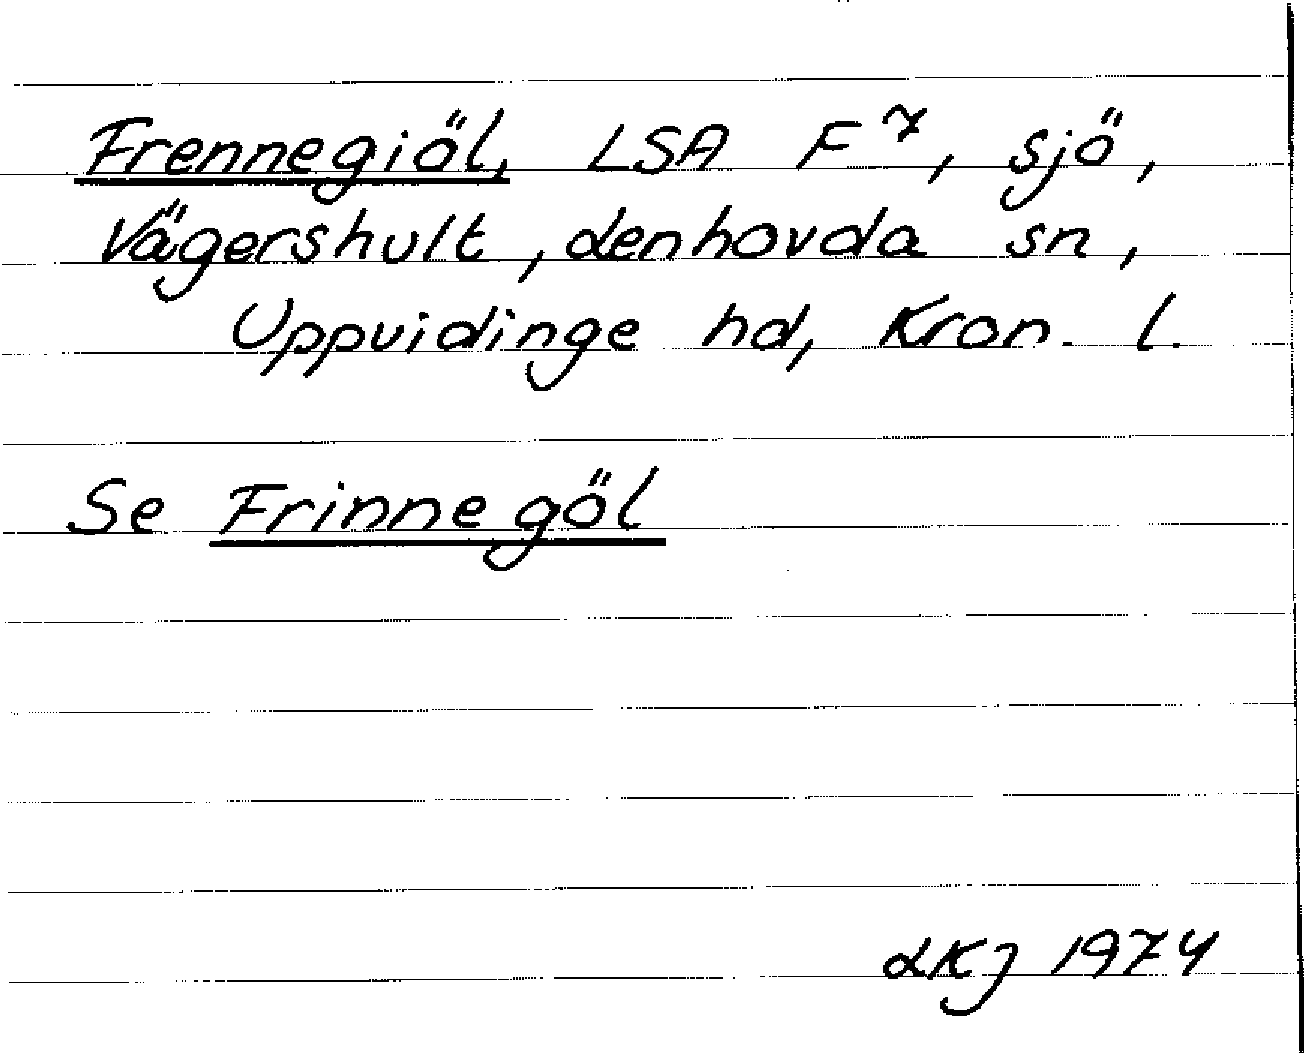 Frennegiöl, LSA F⁷, sjö,
Vägershult, Lenhovda sn,
Uppvidinge hd, Kron. l.
Se Frinnegöl
LKJ 1974